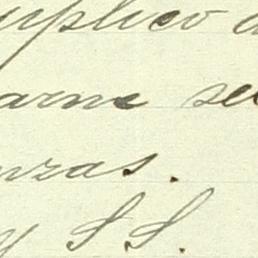 uplico d
arme se
nzas.
y S.S.